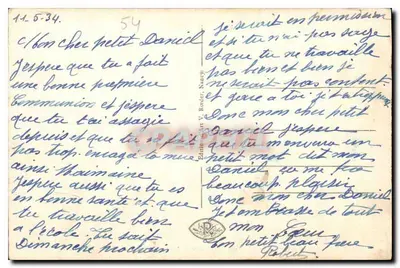 11.5-34.
54
Mon cher petit Daniel
J'espère que tu a fait
une bonne première
Communion et j'espère
que tu t'ai assagie
depuis et que tu n'fait
pas trop enragé ta mère
ainsi Maimaine
J'espère aussi que tu es
en bonne santé et que
tu travaille bien
à l'école. Tu sait
Dimanche prochain
je serait en permission
et si tu n'ai pas sage
et que tu ne travaille
pas bien et bien je
ne serait pas content
et gare à toi
Donc mon cher petit
Daniel j'espère
que tu m'enverra un
petit mot dit mon
Daniel sa me fra
beaucoup plaisir
Donc mon cher Daniel
Je t'embrasse de tout
mon Cœur
Ton petit beau frère
Robert